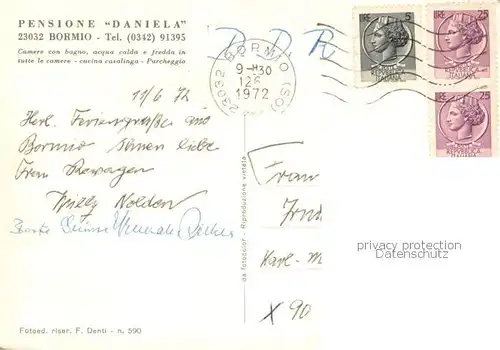 PENSIONE "DANIELA"
23032 BORMIO - Tel. (0342) 91395
Camere con bagno, acqua calda e fredda in
tutte le camere - cucina casalinga - Parcheggio
DDR
23032 BORMIO (SO)
9-1030
12 6
1972
LIRE 5
REPUBBLICA
ITALIANA
LIRE 25
REPUBBLICA
ITALIANA
LIRE 25
REPUBBLICA
ITALIANA
11/6 72
Herl. Feriengrüße aus
Bormio Ihnen liebe
Frau
Willy Nolden
Frau
Karl-M
X 90
privacy protection
oldthing.com
da fotocolor - Riproduzione vietata
Fotoed. riser. F. Denti - n. 590